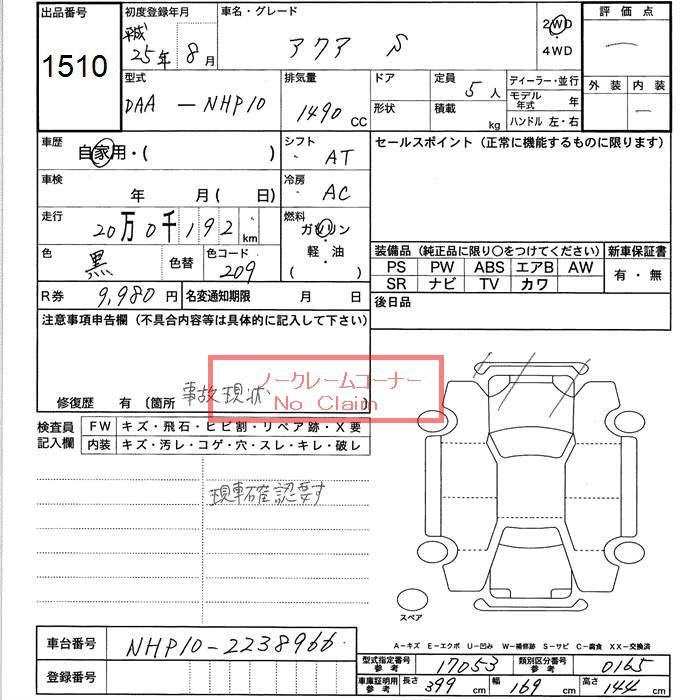 出品番号 1510
初度登録年月 平成 25年 8月
車名・グレード アクア S
2WD
4WD
評価点 —
型式 DAA — NHP10
排気量 1490 CC
ドア
形状
定員 5人
積載 kg
ディーラー・並行
モデル年式 年
ハンドル 左・右
外装 内装
—
車歴 自家用・( )
シフト AT
セールスポイント (正常に機能するものに限ります)
車検 年 月 ( 日)
冷房 AC
走行 20万0千192 km
燃料 ガソリン
軽・油
( )
色 黒 色替 色コード 209
装備品 (純正品に限り○をつけてください)
新車保証書
PS PW ABS エアB AW
SR ナビ TV カワ
有・無
R券 9,980円 名変通知期限 月 日
後日品
注意事項申告欄 (不具合内容等は具体的に記入して下さい)
ノークレームコーナー
No Claim
修復歴 有 〔箇所 事故現状 〕
検査員記入欄
FW キズ・飛石・ヒビ割・リペア跡・X要
内装 キズ・汚レ・コゲ・穴・スレ・キレ・破レ
現車確認要す
スペア
車台番号 NHP10-2238966
登録番号
A-キズ E-エクボ U-凹み W-補修跡 S-サビ C-腐食 XX-交換済
型式指定番号 参考 17053 類別区分番号 参考 0165
車庫証明用 参考 長さ 399 cm 幅 169 cm 高さ 144 cm